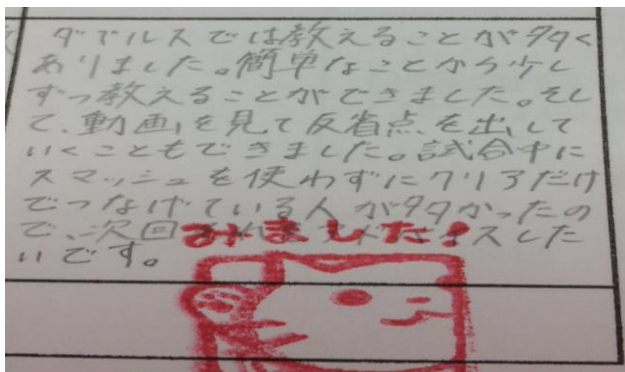 ダブルスでは教えることが多く
ありました。簡単なことから少し
ずつ教えることができました。そし
て、動画を見て反省点を出して
いくこともできました。試合中に
スマッシュを使わずにクリアだけ
でつなげている人が多かったの
で、次回アドバイスした
いです。
みました!